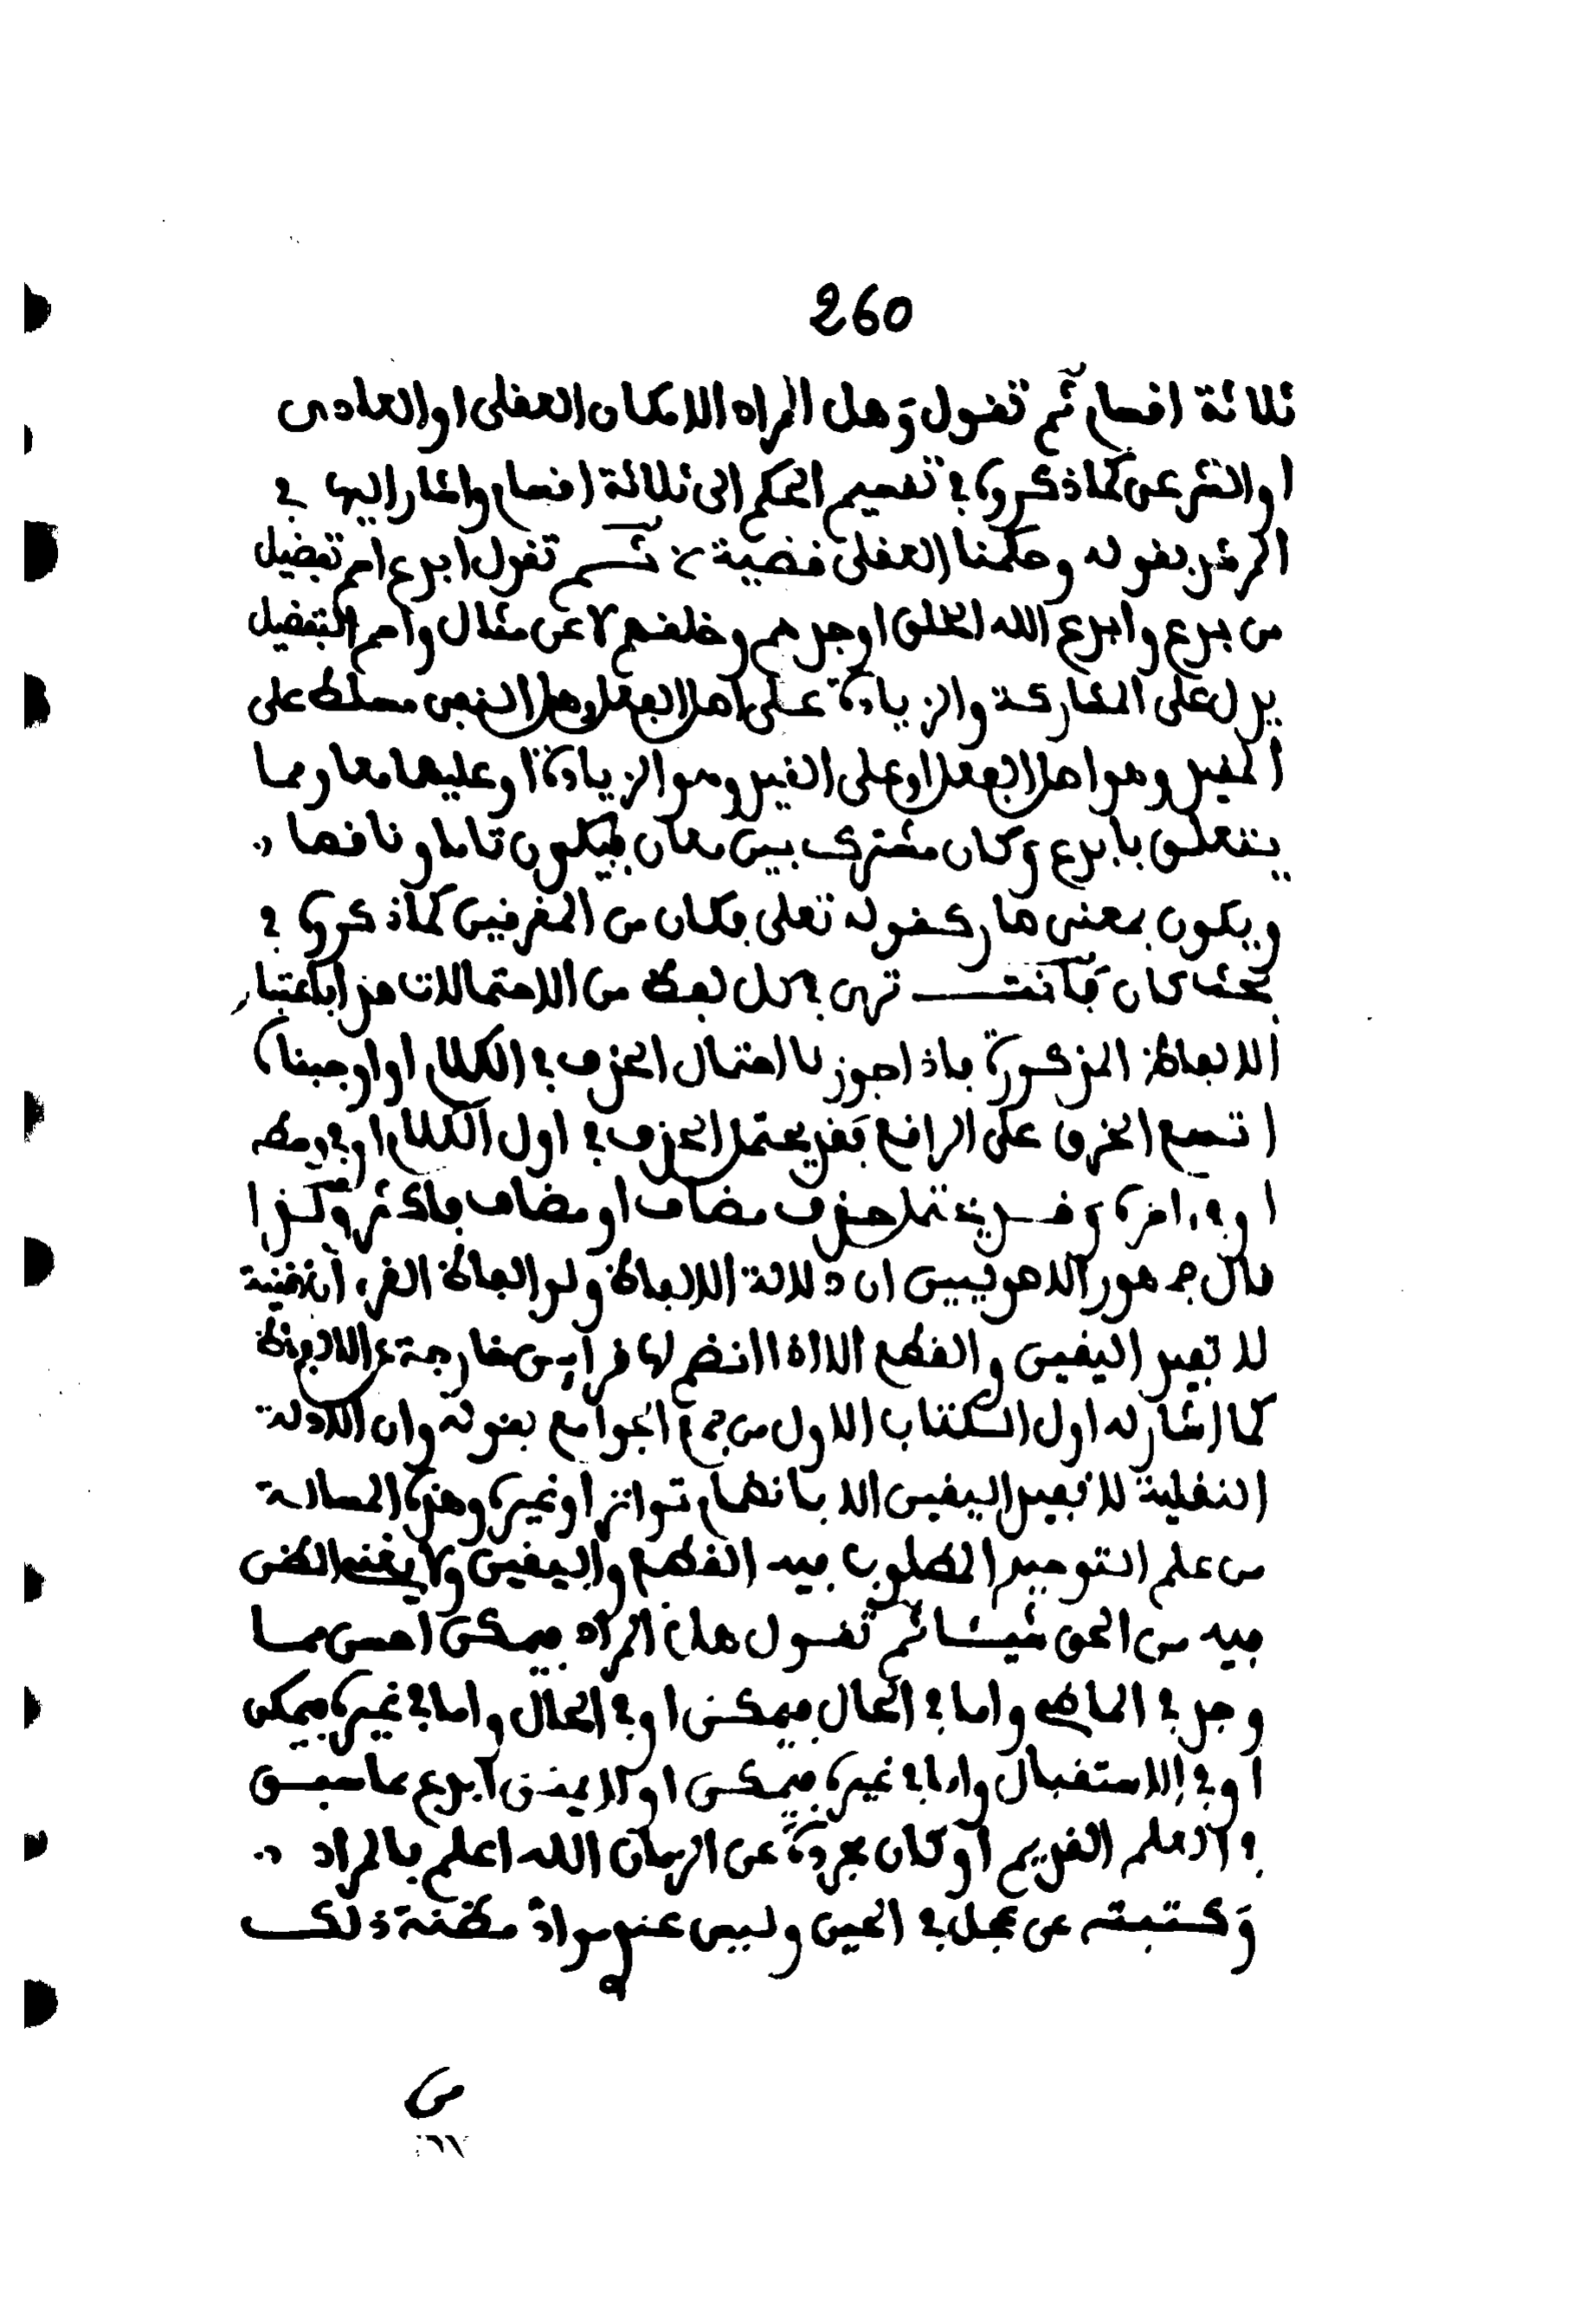 260
ثلاثة اقسام ثم تقول وهل المراد الامكان العقلى او العادى
او الشرعى كما ذكروه في تقسيم الحكم الى ثلاثة اقسام واشار اليها في
المرشد بقوله وحكمنا العقلى قضية ثم تقول ابدع اسم تفضيل
من بدع وابدع الله الخلق اوجدهم وخلقهم لا عن مثال واسم التفضيل
يدل على المشاركة والزيادة على اصل الفعل وهل النفى مسلط على
المقيد وهو اصل الفعل او على القيد وهو الزيادة او عليهما معا ومما
يتعلق بابدع وكان مشترك بين معان فيكون تاما وناقصا
ويكون بمعنى صار كقوله تعلى فكان من المغرقين كما ذكروه في
بحث كان فانت ترى في كل لفظ من الاحتمالات هذا باعتبار
الالفاظ المذكورة فاذا جوزنا احتمال الحذف في الكلام او اوجبناه
اتسع الخرق على الراقع فقد يحتمل الحذف في اول الكلام او في وسطه
او في اخره وقد يحتمل حذف مضاف او مضاف فاكثر وكذا
قال جمهور الاصوليين ان دلالة الالفاظ ولو الفاظ القرءان والسنة
لا تفيد اليقين والقطع الا اذا انضم لها قراين خارجة عن الالفاظ
كما اشار له اول الكتاب الاول من جمع الجوامع بقوله وان الادلة
النقلية لا تفيد اليقين الا بانضمام تواتر او غيره وهذه المسالة
من علم التوحيد المطلوب فيه القطع واليقين ولا يغنى الظن
فيه من الحق شيئا ثم تقول هل المراد فيمكن احسن مما
وجد في الماضى واما في الحال فيمكن او في الحال واما في غيره فيمكن
او في الاستقبال واما في غيره فيمكن او لا يمكن ابدع مما سبق
في العلم القديم او كان مجردة عن الزمان الله اعلم بالمراد
وكتبته عن عجل في الحين وليس عندى مواد مظنة ذلك